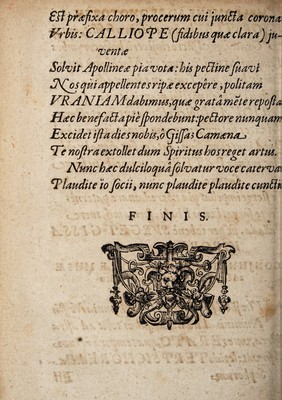 Est præfixa choro, procerum cui juncta corona
Vrbis: CALLIOPE (fidibus quæ clara) ju-
ventæ
Solvit Apollineæ pia vota: his pectine suavi
Nos qui appellentes ripæ excepêre, politam
VRANIAM dabimus, quæ gratâ mẽte reposta
Hæc benefacta piè spondebunt: pectore nunquam
Excidet ista dies nobis, ô Gissas Camæna
Te nostra extollet dum Spiritus hos reget artus.
Nunc hæc dulciloquâ solvatur voce caterva
Plaudite ïo socii, nunc plaudite plaudite cuncti
FINIS.